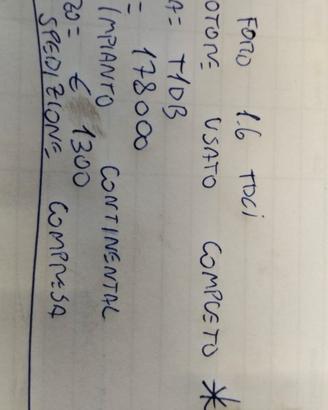 FORD 1.6 TDCi
OTORE USATO COMPLETO *
A= T1DB
= 178000
IMPIANTO CONTINENTAL
ZO= € 1300
SPEDIZIONE COMPRESA